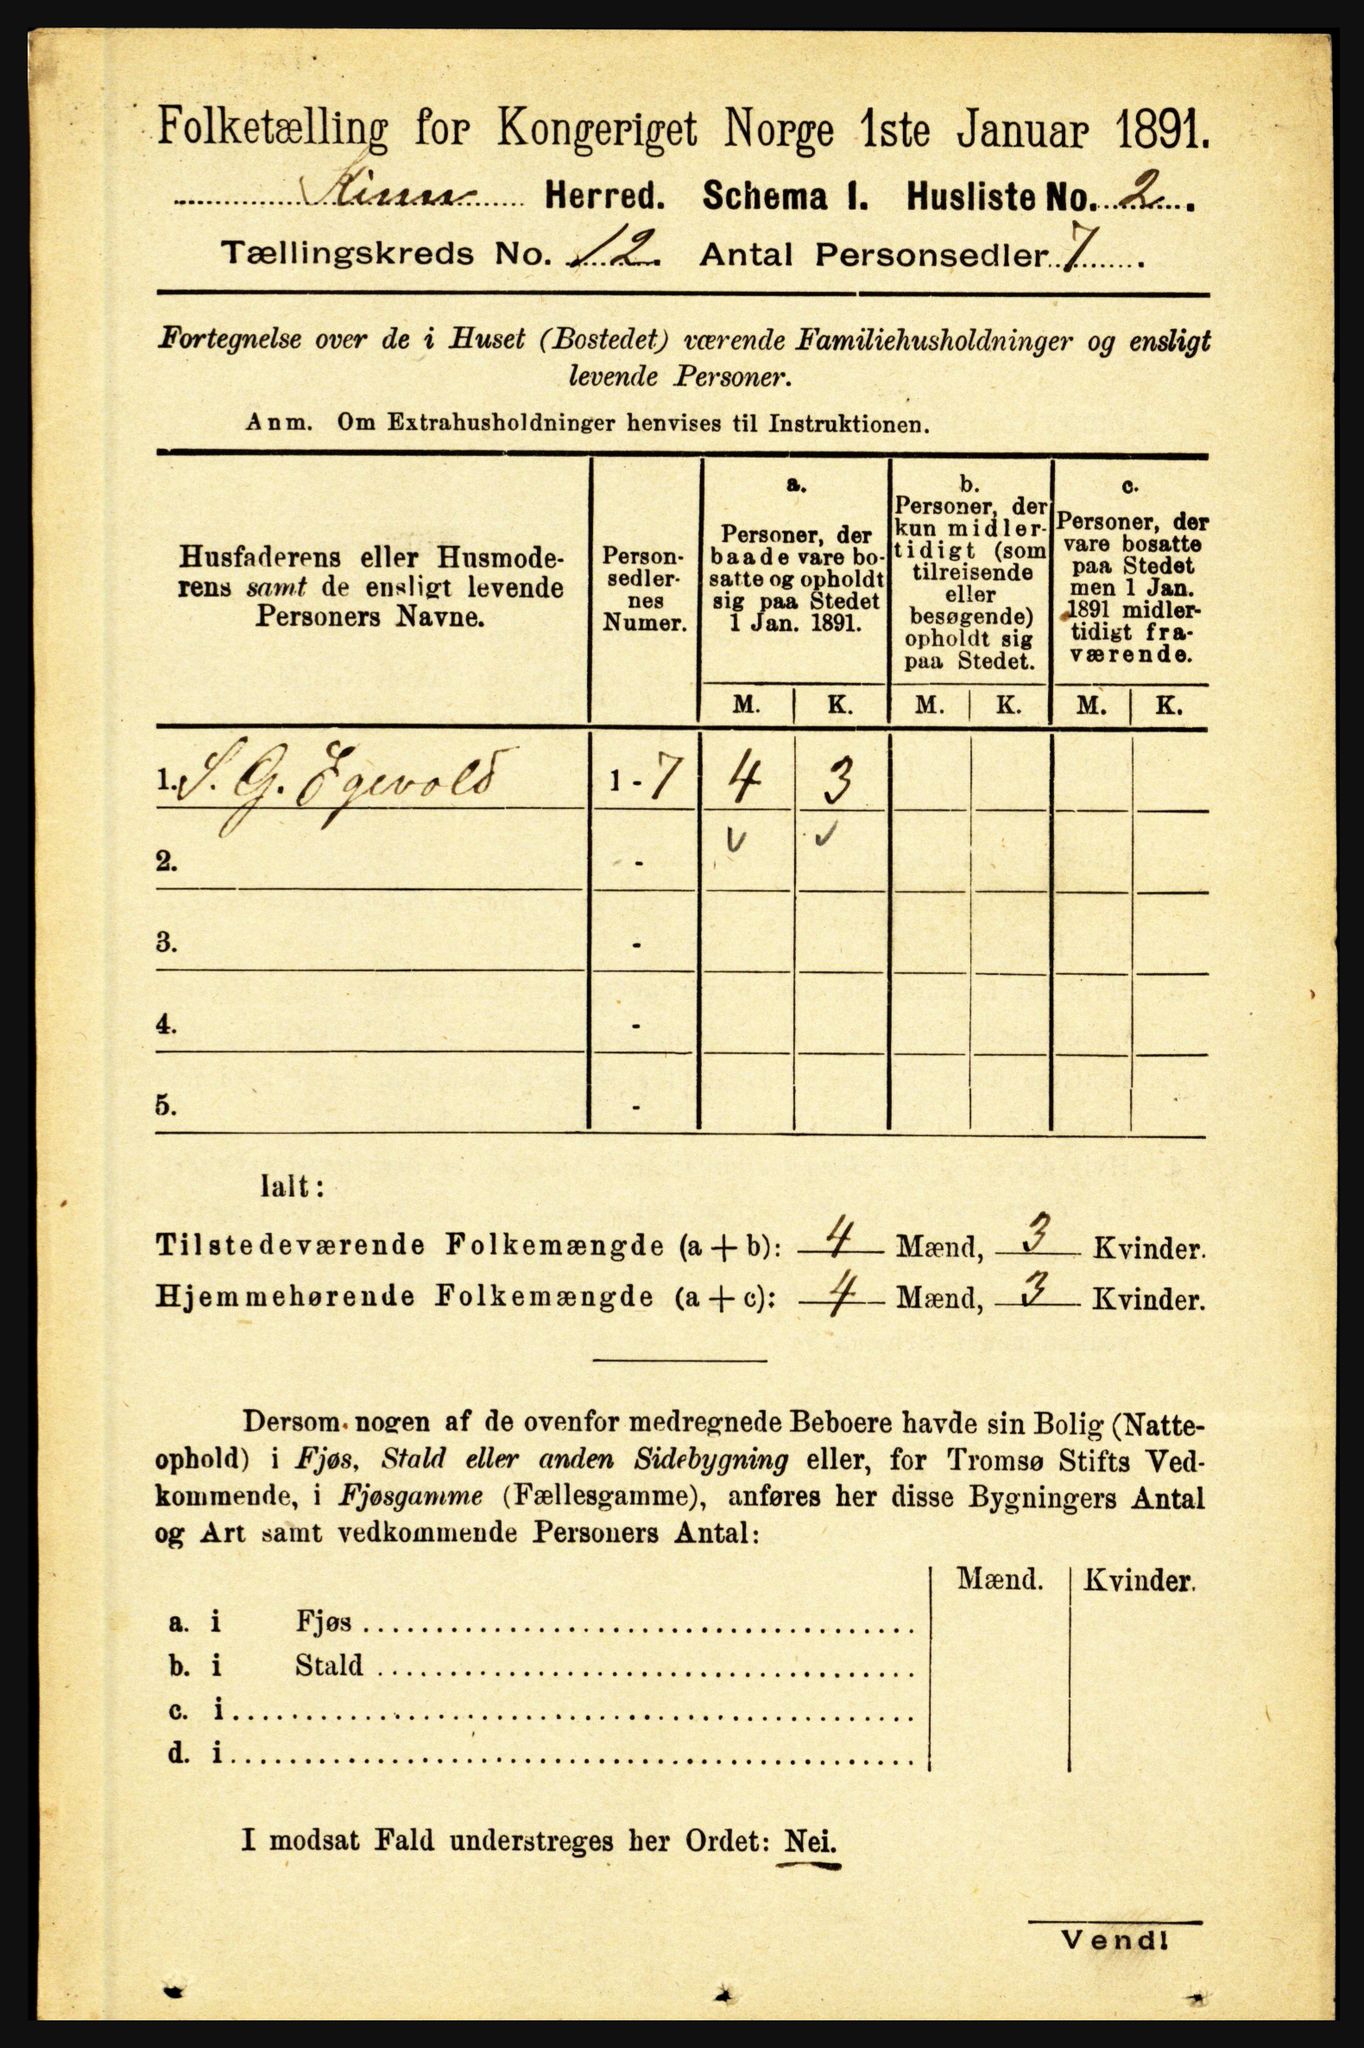 Folketælling for Kongeriget Norge 1ste Januar 1891.
Kinn Herred. Schema I. Husliste No. 2.
Tællingskreds No. 12. Antal Personsedler 7.
Fortegnelse over de i Huset (Bostedet) værende Familiehusholdninger og ensligt
levende Personer.
Anm. Om Extrahusholdninger henvises til Instruktionen.
Husfaderens eller Husmode-
rens samt de ensligt levende
Personers Navne.
Person-
sedler-
nes
Numer.
a.
Personer, der
baade vare bo-
satte og opholdt
sig paa Stedet
1 Jan. 1891.
b.
Personer, der
kun midler-
tidigt (som
tilreisende
eller
besøgende)
opholdt sig
paa Stedet.
c.
Personer, der
vare bosatte
paa Stedet
men 1 Jan.
1891 midler-
tidigt fra-
værende.
M. K. M. K. M. K.
1. S. G. Egevold 1 - 7 4 3
2. -
3. -
4. -
5. -
Ialt:
Tilstedeværende Folkemængde (a + b): 4 Mænd, 3 Kvinder.
Hjemmehørende Folkemængde (a + c): 4 Mænd, 3 Kvinder.
Dersom nogen af de ovenfor medregnede Beboere havde sin Bolig (Natte-
ophold) i Fjøs, Stald eller anden Sidebygning eller, for Tromsø Stifts Ved-
kommende, i Fjøsgamme (Fællesgamme), anføres her disse Bygningers Antal
og Art samt vedkommende Personers Antal:
Mænd. Kvinder.
a. i Fjøs
b. i Stald
c. i
d. i
I modsat Fald understreges her Ordet: Nei.
Vend!